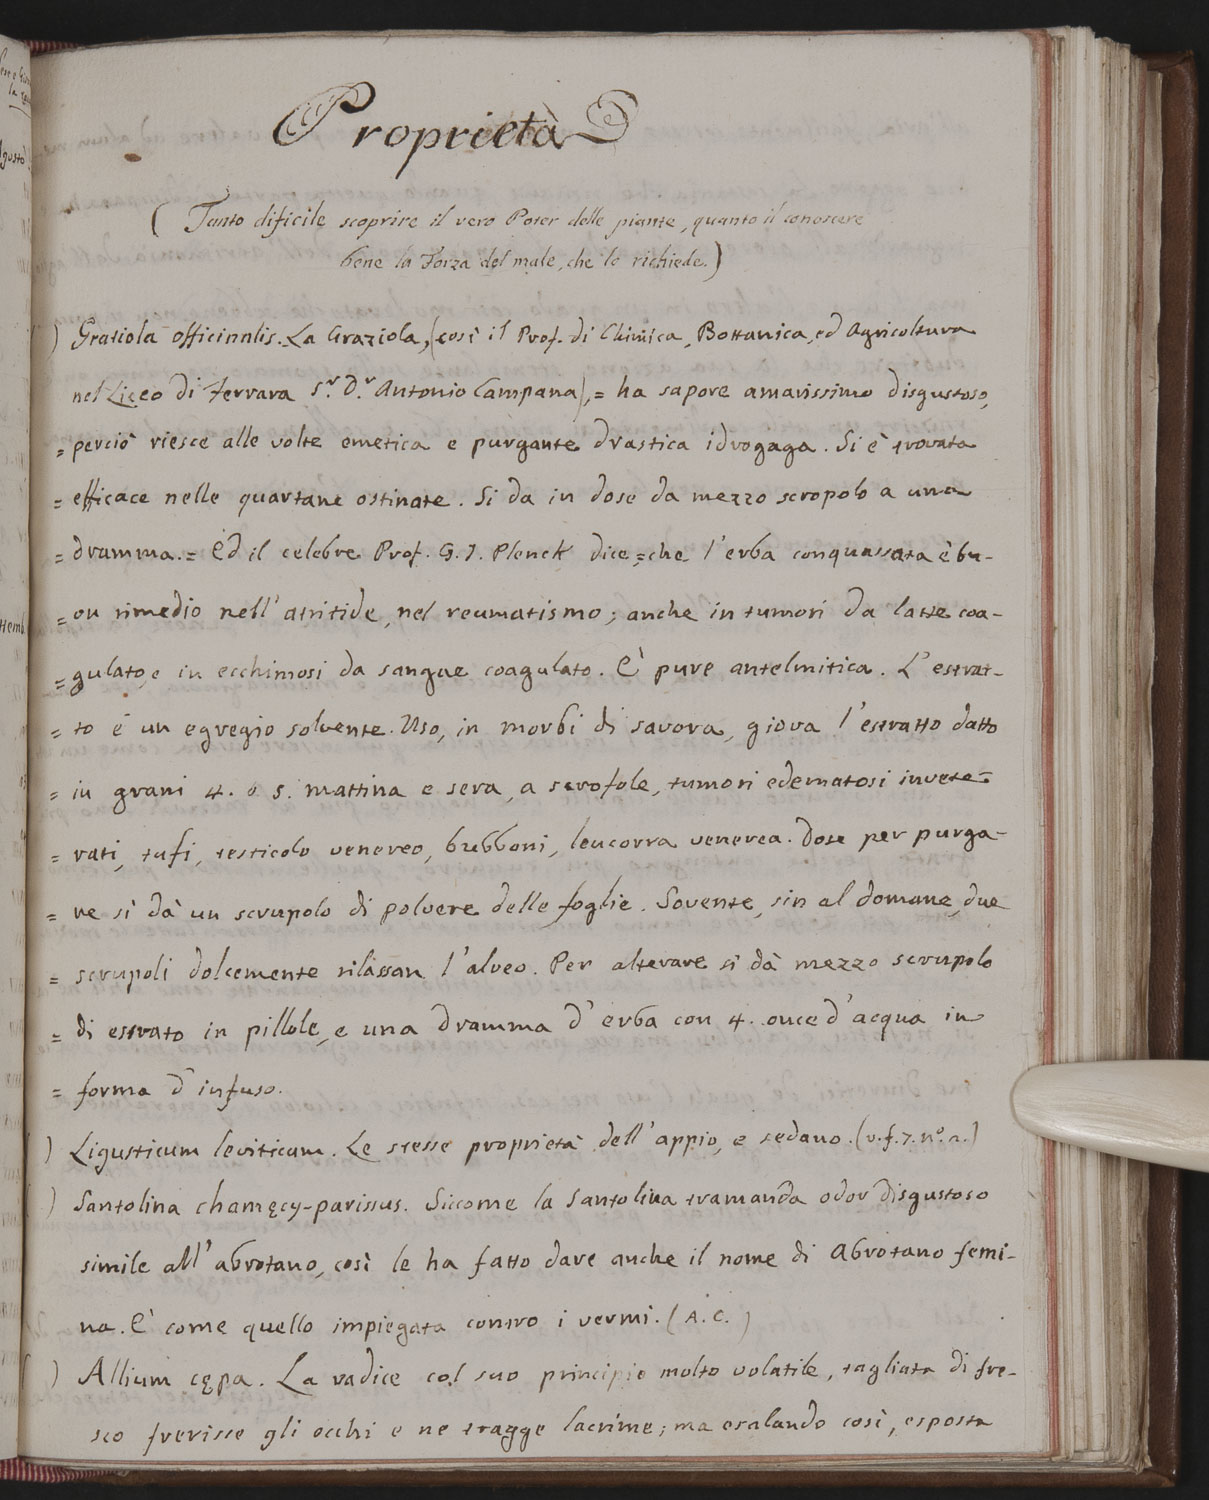 Proprietà
( Tanto dificile scoprire il vero Poter delle piante, quanto il conoscere
bene la Forza del male, che lo richiede.)
) Gratiola officinalis. La Graziola, (così il Prof. di Chimica, Bottanica, ed Agricoltura
nel Liceo di Ferrara Sr. Dr. Antonio Campana), = ha sapore amarissimo disgustoso,
= perciò riesce alle volte emetica e purgante drastica idrogaga. Si è trovata
= efficace nelle quartane ostinate. Si da in dose da mezzo scropolo a una
= dramma. = Ed il celebre Prof. G. J. Plenck dice, = che l'erba conquassata è bu-
= on rimedio nell' atritide, nel reumatismo; anche in tumori da latte coa-
= gulato, e in ecchimosi da sangue coagulato. E' pure antelmitica. L' estrat-
= to è un egregio solvente. Uso, in morbi di savora, giova l'estratto datto
= in grani 4. o 5. mattina e sera, a scrofole, tumori edematosi invete-
= rati, tufi, testicolo venereo, bubboni, leucorra venerea. Dose per purga-
= re si dà un scrupolo di polvere delle foglie. Sovente, sin al domane, due
= scrupoli dolcemente rilassan l'alveo. Per alterare si dà mezzo scrupolo
= di estrato in pillole, e una dramma d'erba con 4. once d'acqua in
= forma d'infuso.
) Ligusticum leviticum. Le stesse proprietà dell'appio, e sedano. (v. f. 7. nº. 2.)
) Santolina chamęcy-parissus. Siccome la Santolina tramanda odor disgustoso
simile all' abrotano, così le ha fatto dare anche il nome di Abrotano femi-
na. E' come quello impiegata contro i vermi. (A. C. )
) Allium cępa. La radice col suo principio molto volatile, tagliata di fre-
sco ferisse gli occhi e ne tragge lacrime; ma esalando così, esposta